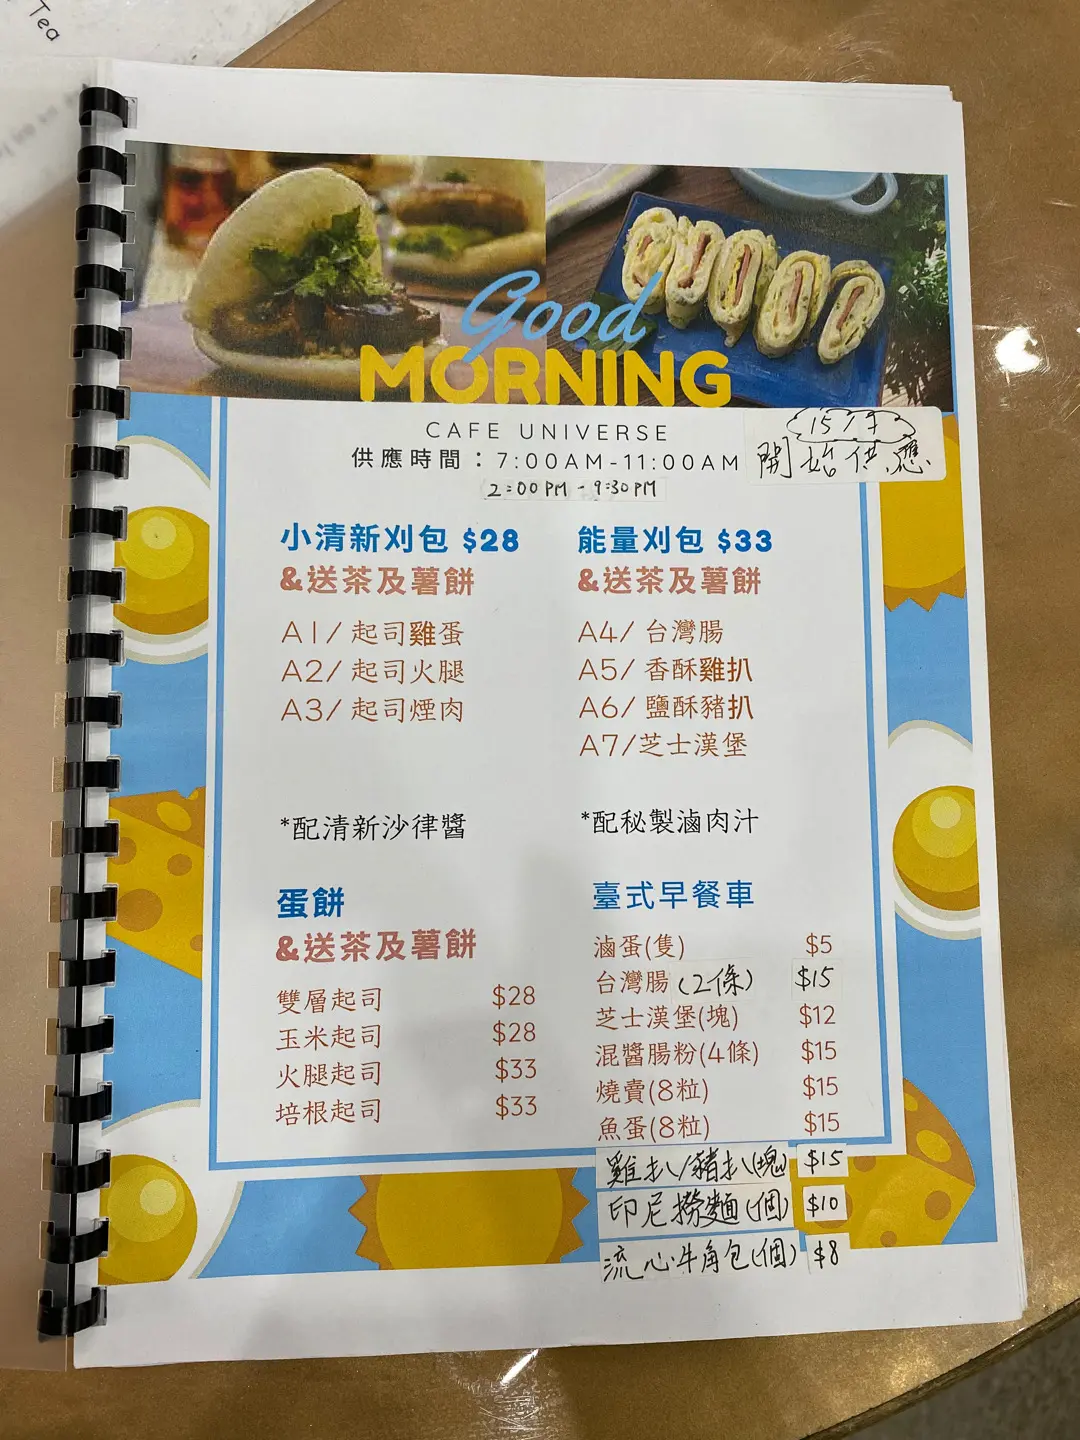 Tea
Good
MORNING
CAFE UNIVERSE
供應時間：7:00AM-11:00AM
2:00PM - 9:30PM
15/7
開始供應
小清新刈包 $28
&送茶及薯餅
A1/ 起司雞蛋
A2/ 起司火腿
A3/ 起司煙肉
*配清新沙律醬
能量刈包 $33
&送茶及薯餅
A4/ 台灣腸
A5/ 香酥雞扒
A6/ 鹽酥豬扒
A7/芝士漢堡
*配秘製滷肉汁
蛋餅
&送茶及薯餅
雙層起司 $28
玉米起司 $28
火腿起司 $33
培根起司 $33
臺式早餐車
滷蛋(隻) $5
台灣腸(2條) $15
芝士漢堡(塊) $12
混醬腸粉(4條) $15
燒賣(8粒) $15
魚蛋(8粒) $15
雞扒/豬扒(塊) $15
印尼撈麵(個) $10
流心牛角包(個) $8